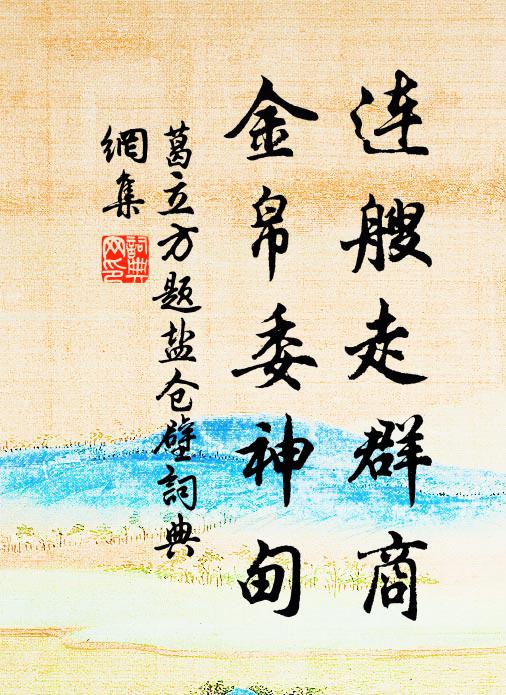 连艘走群商
金帛委神甸
葛立方题盐仓壁词典
网集
词典
网印